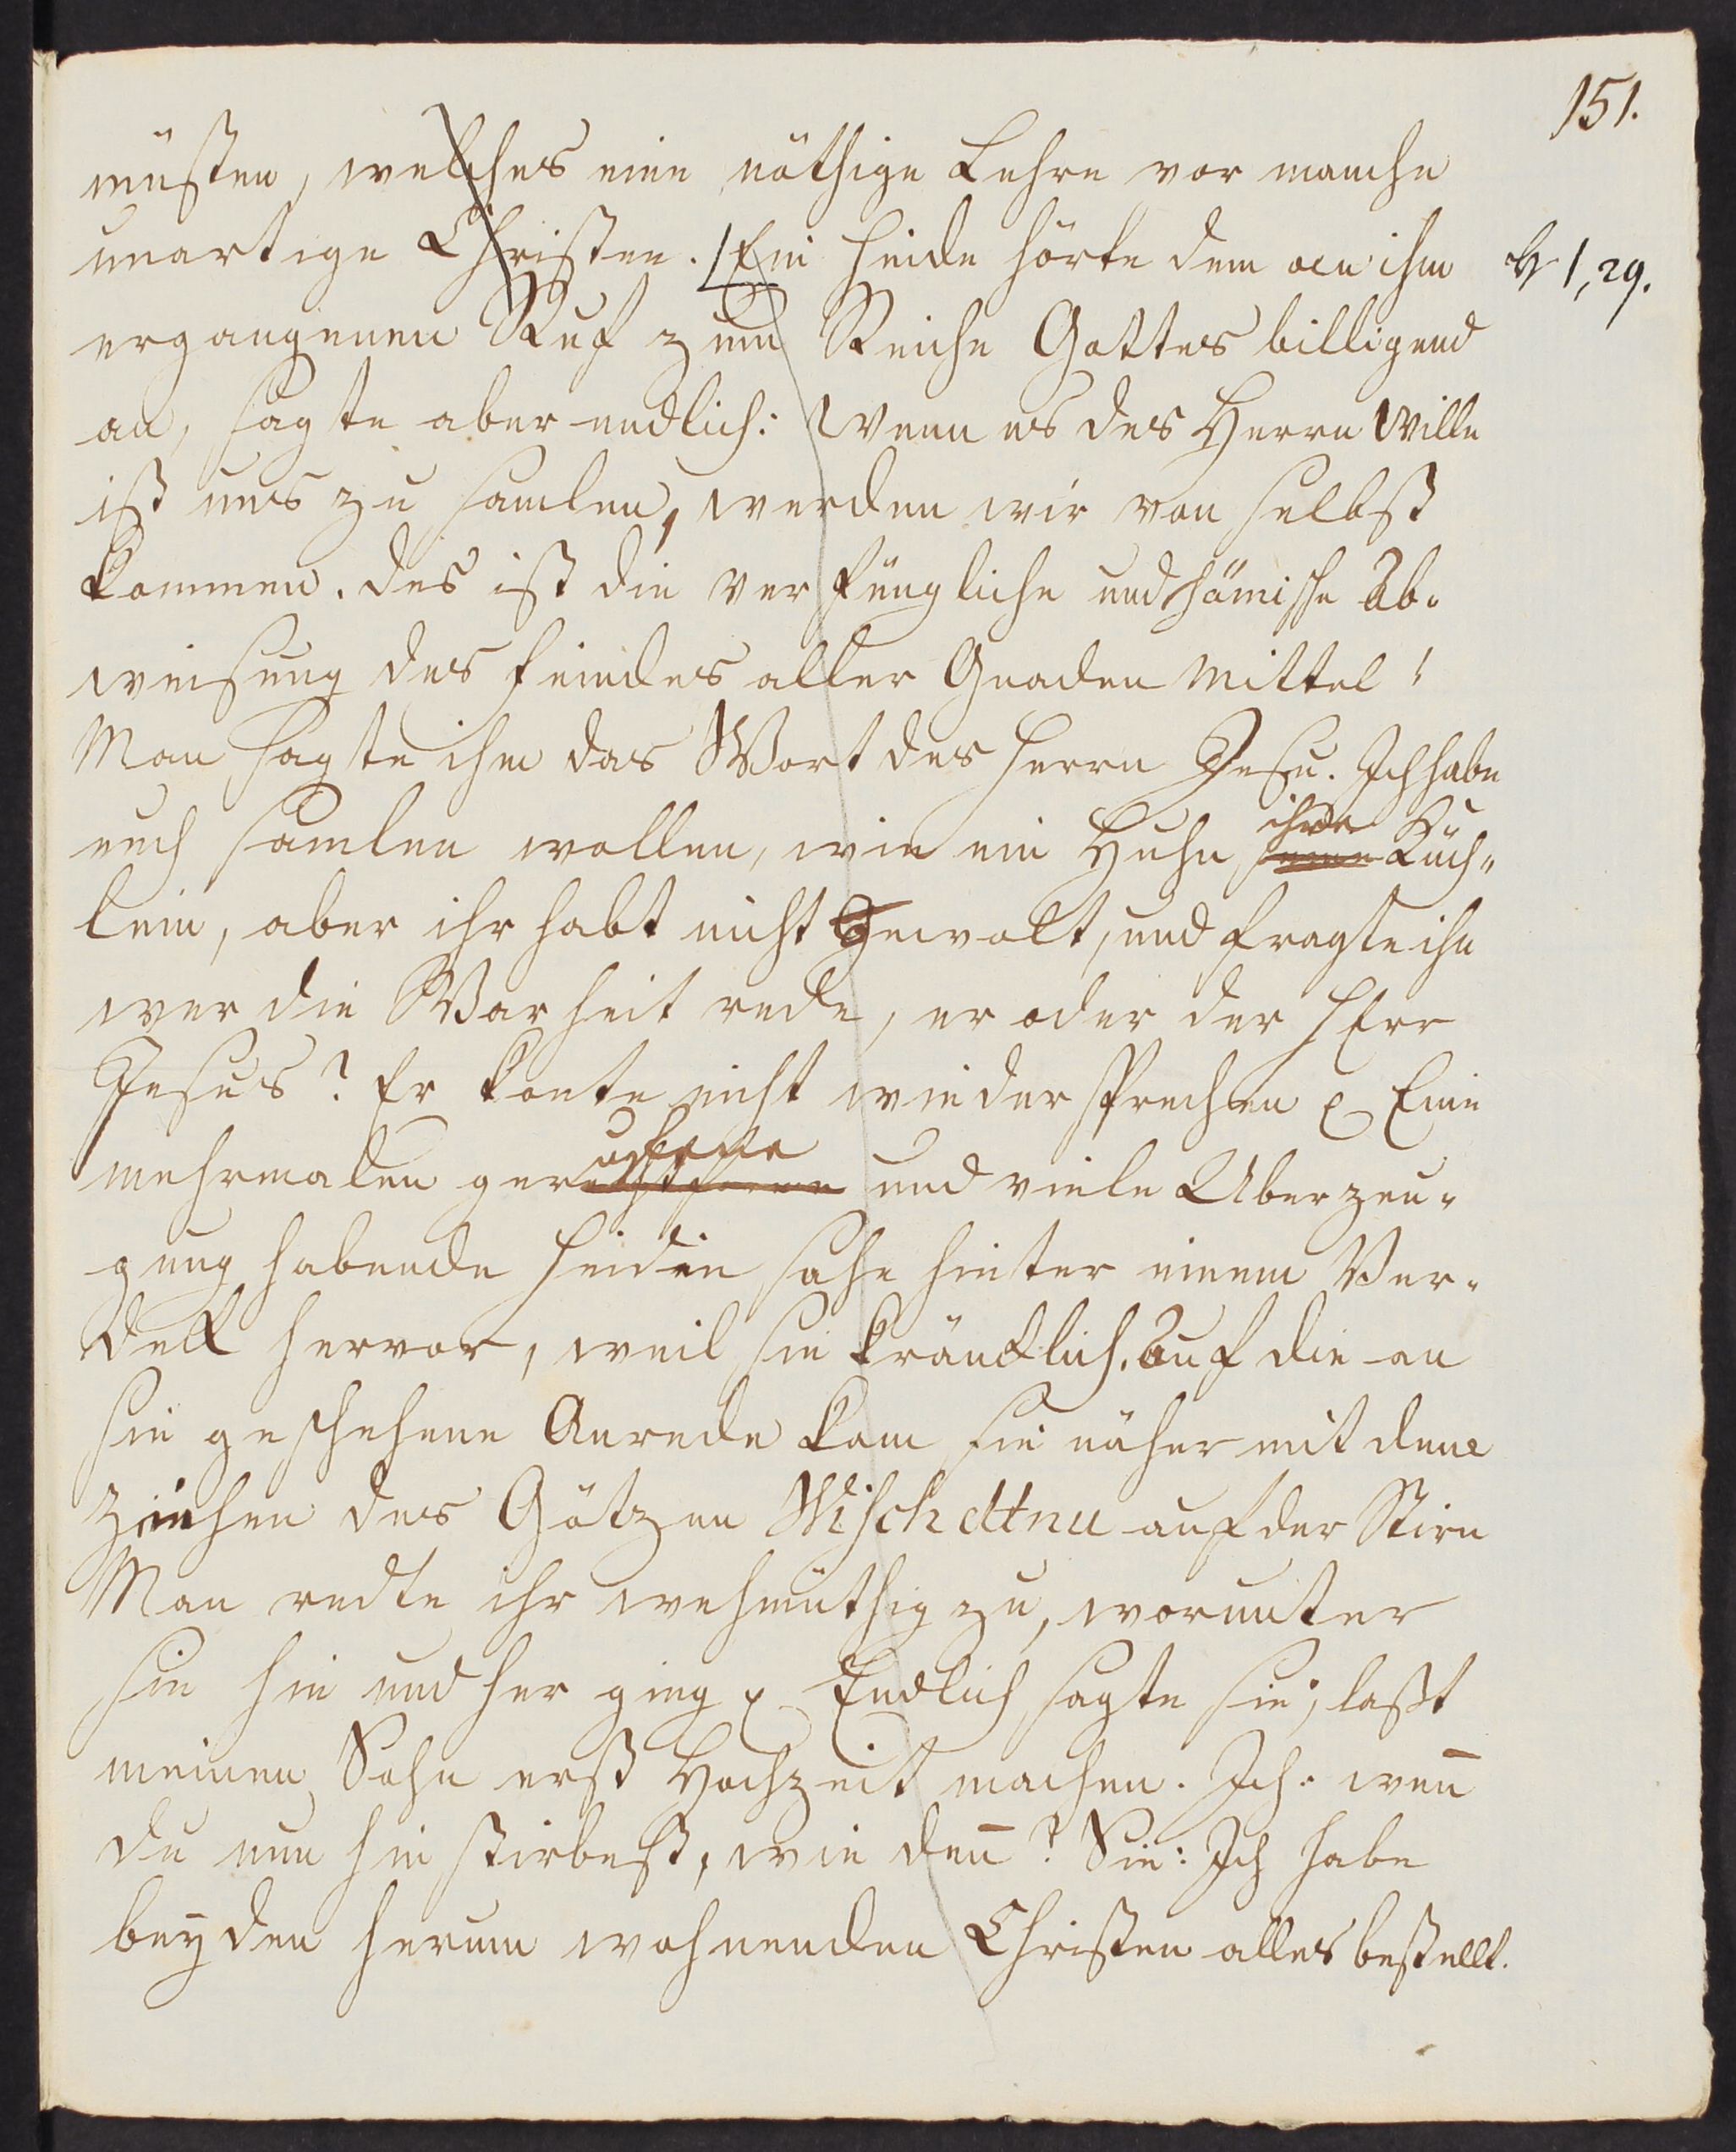 151.
müsten, welches eine nöthige Lehre vor manche
unartige Christen. Ein Heide hörte dem an ihm
1,29.
ergangenen Ruf zum Reiche Gottes billigend
an, sagte aber endlich: Wenn es des Herrn Wille
ist uns zu samlen, werden wir von selbst
kommen. Das ist die verfängliche und hämische Ab-
weisung des Feindes aller Gnaden Mittel!
Man sagte ihm das Wort des Herrn Jesu. Ich habe
euch samlen wollen, wie ein Huhn seine ihre Küch-
lein, aber ihr habt nicht gewolt, und fragte ihn
wer die Warheit rede, er oder der HErr
Jesus? Er konte nicht wiedersprechen Eine
mehrmalen gerufene und viele Uberzeu-
gung habende Heidin sahe hinter einem Ver-
deck hervor, weil sie kräncklich. Auf die an
sie geschehene Anrede kam sie näher mit dem
Zeichen des Götzen Wischdtnu auf der Stirn
Man redte ihr wehmüthig zu, worunter
sie hin und her ging Endlich sagte sie; laßt
meinen Sohn erst Hochzeit machen. Ich: weñ
du nun hin stirbest, wie deñ? Sie: Ich habe
bey den herum wohnenden Christen alles bestellt.